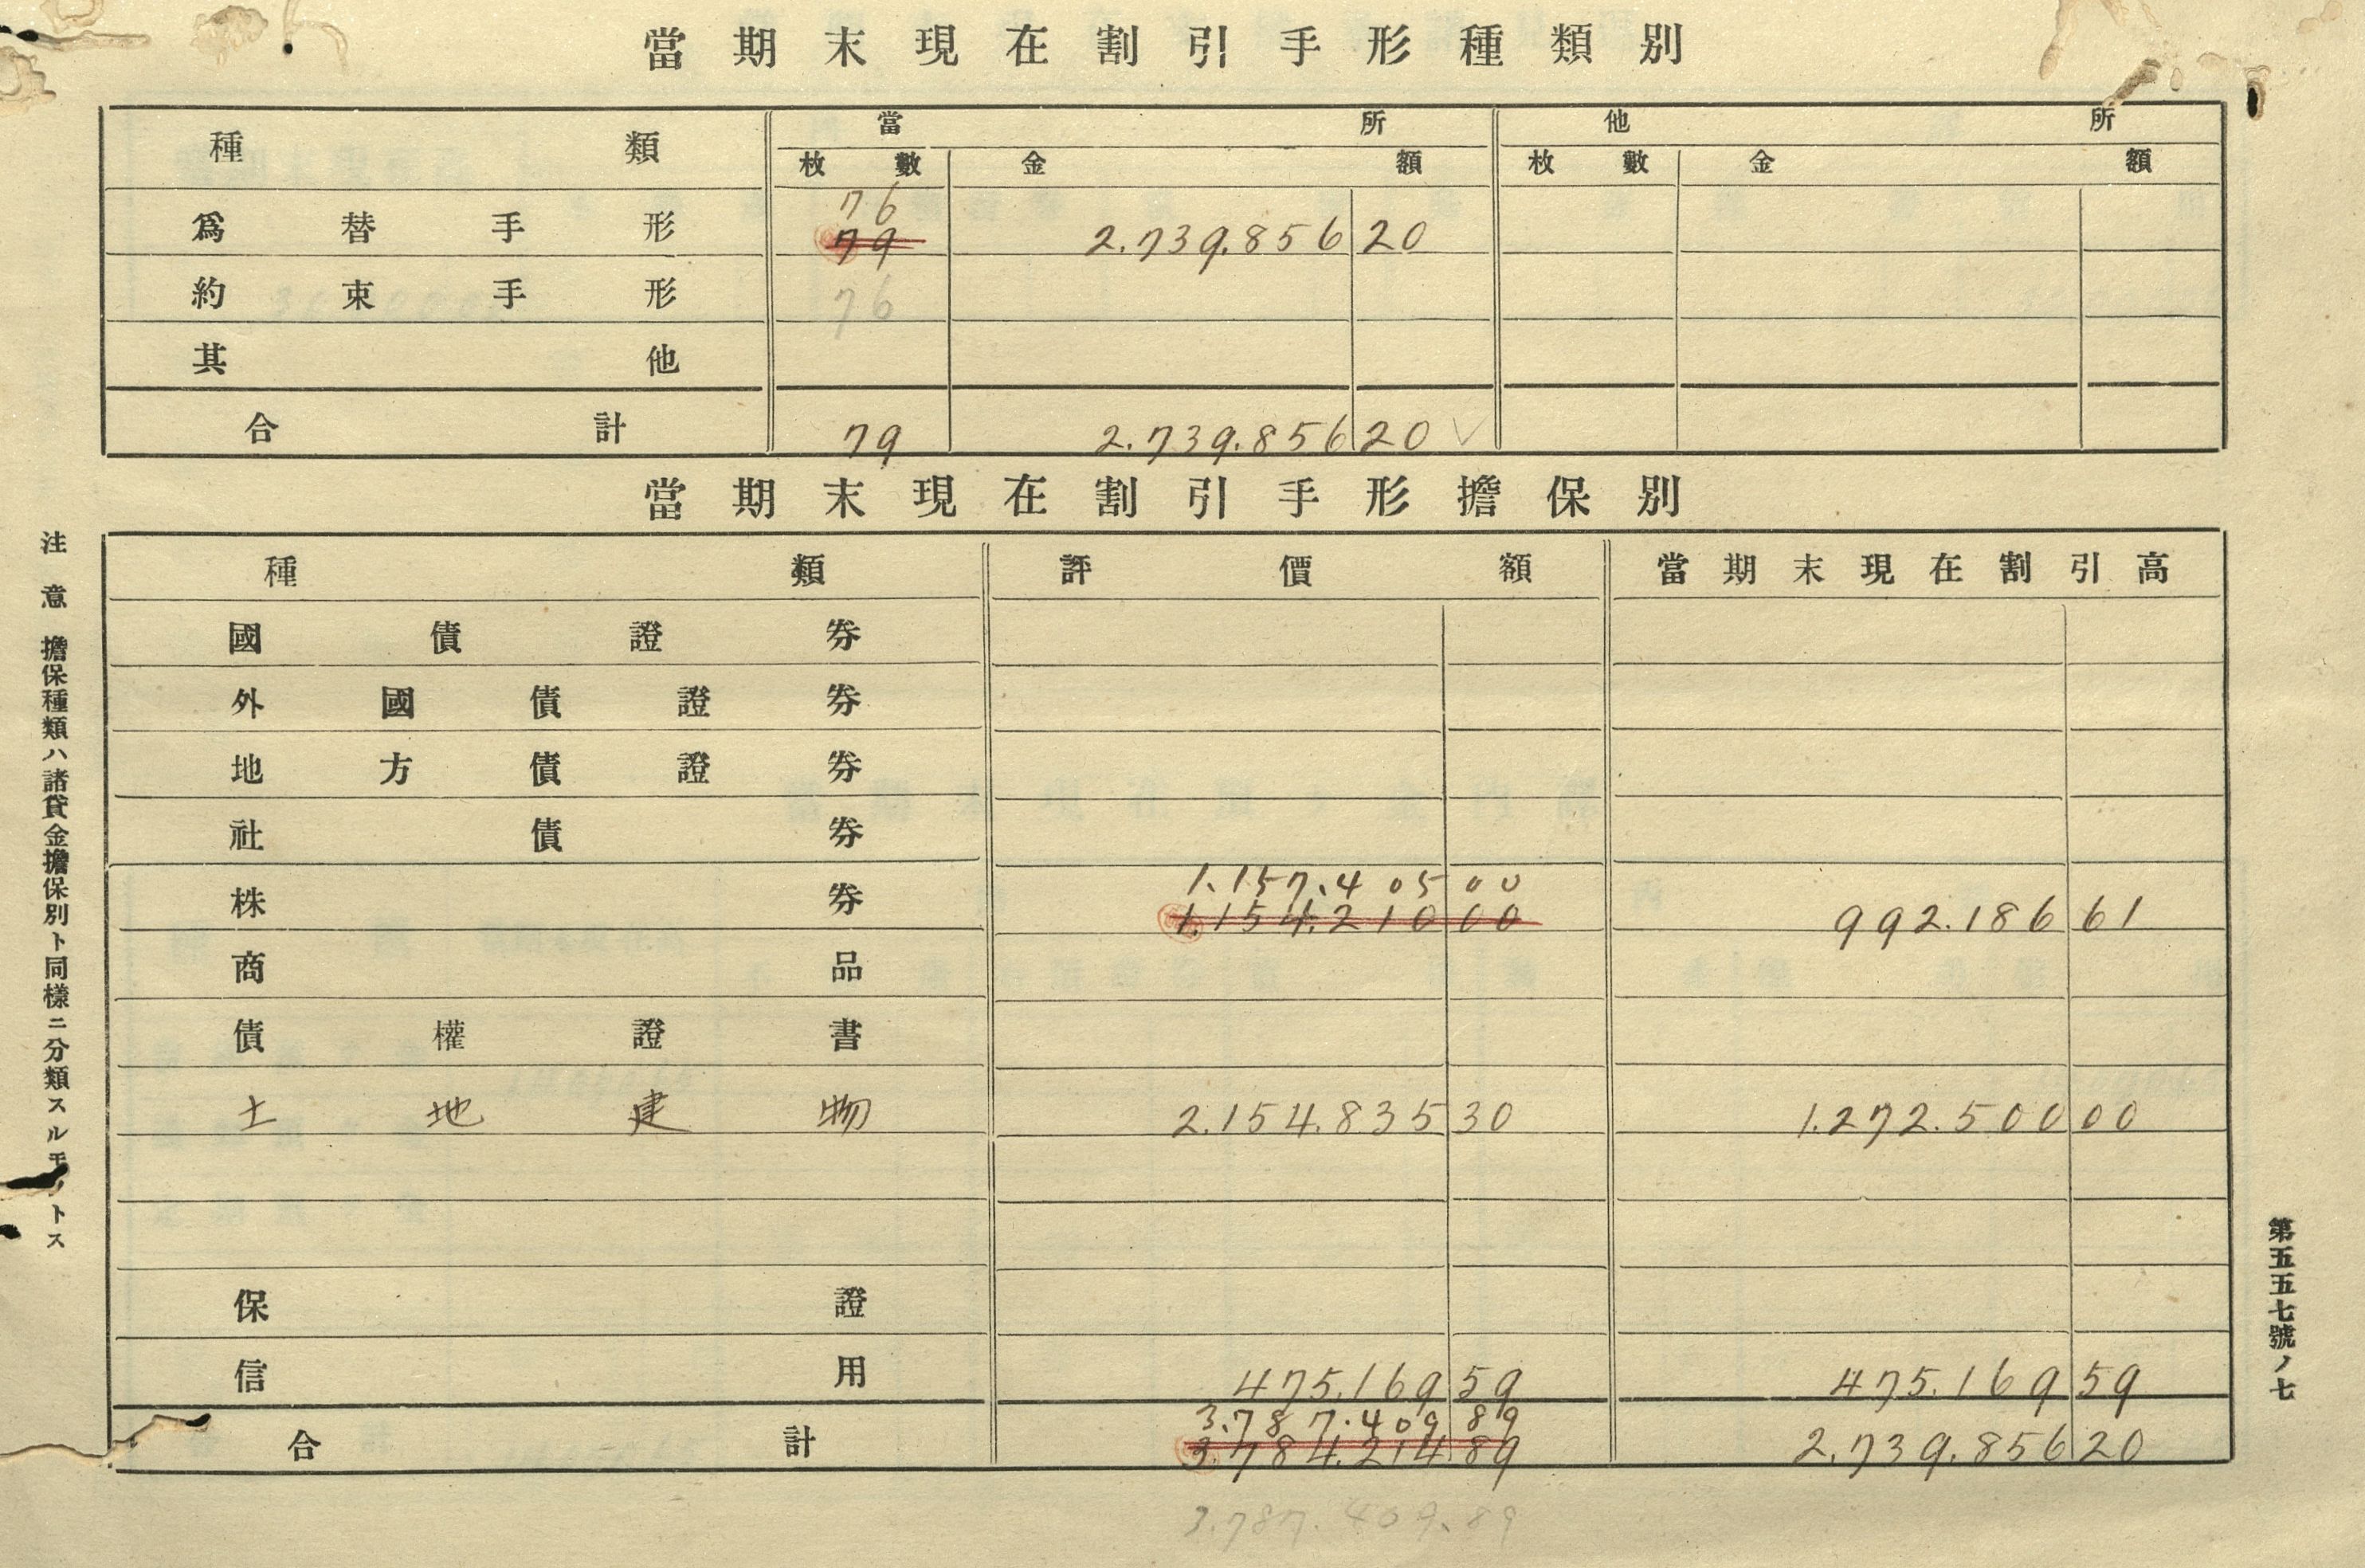 當期末現在割引手形種類別
種類 當所 他所
枚數 金額 枚數 金額
76
爲替手形 79 2.739.856 20
約束手形 76
其他
合計 79 2.739.856 20 ✓
當期末現在割引手形擔保別
種類 評價額 當期末現在割引高
國債證券
外國債證券
地方債證券
社債券
1.157.405 00
株券 1.154.210 00 992.186 61
商品
債權證書
土地建物 2.154.835 30 1.272.500 00
保證
信用 475.169 59 475.169 59
3.787.409 89
合計 3.784.214 89 2.739.856 20
3.787.409.89
注意 擔保種類ハ諸貸金擔保別ト同樣ニ分類スルモノトス
第五五七號ノ七